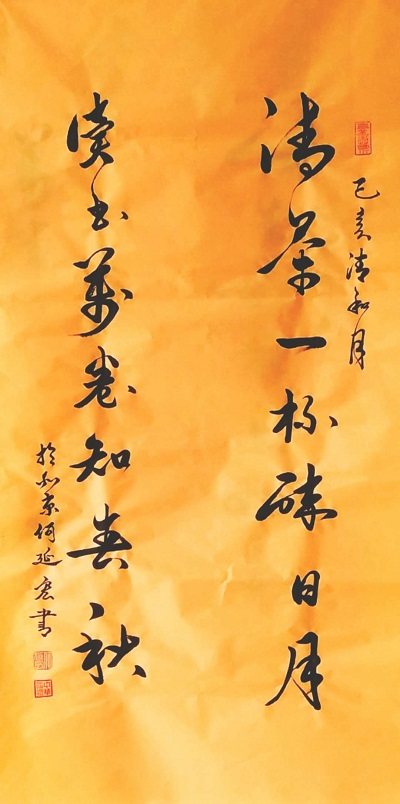 己亥清和月
清茶一杯醉日月
读书萬卷知春秋
於北京何延宏書